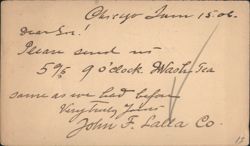 Chicago June 15-06.
Dear Sir!
Please send us
5 9/5 9 o'clock Wash. Tea
same as we had before
Very truly Yours
John F. Lalla Co.